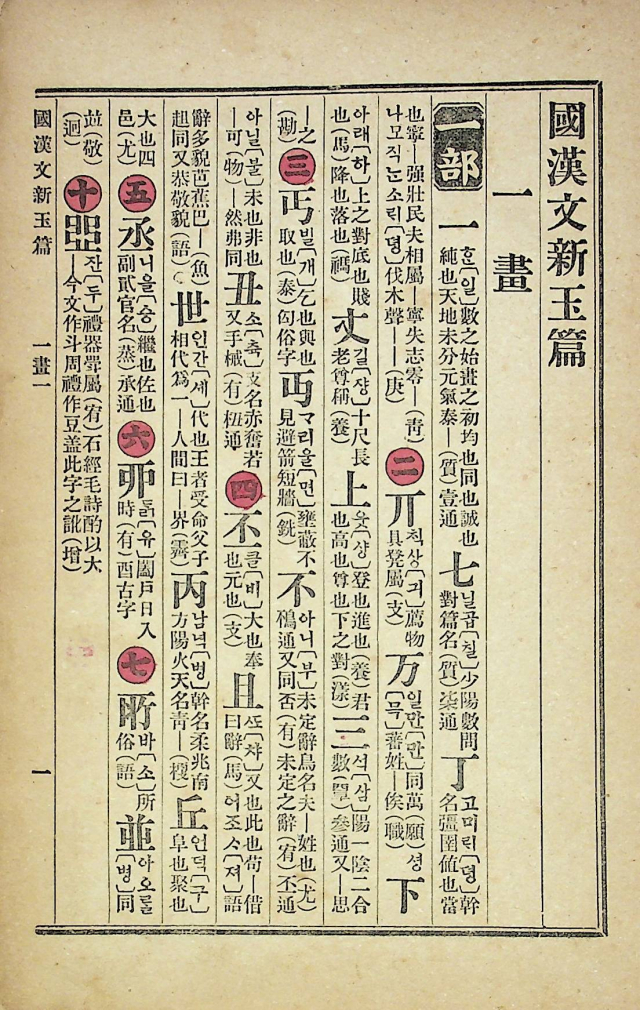 國漢文新玉篇
一畫
一部 一 한[일]數之始畫之初均也同也誠也純也天地未分元氣泰―(質)壹通 七 닐곱[칠]少陽數問對篇名(質)柒通 丁 고미릭[뎡]幹名彊圉値也當
也寧―强壯民夫相屬―寧失志零―(靑)나모직는소릭[뎡]伐木聲――(庚) 二 丌 척상[긔]薦物具凳屬(支) 万 일만[만]同萬(願)셩[믁]蕃姓―俟(職) 下
아래[하]上之對底也賤也(馬)降也落也(禡) 丈 길[쟝]十尺長老尊稱(養) 上 웃[샹]登也進也(養)君也高也尊也下之對(漾) 三 석[삼]陽一陰二合數(覃)參通又―思
―之(勘) 三 丐 빌[개]乞也與也取也(泰)匃俗字 丏 ᄀᆞ리울[면]壅蔽不見避箭短牆(銑) 不 아니[부]未定辭鳥名夫―姓也(尤)鵂通又同否(有)未定之辭(宥)丕通
아닐[불]未也非也―可(物)―然弗同 丑 소[츅]支名赤奮若又手械(有)杻通 四 丕 클[비]大也奉也元也(支) 且 ᄯᅩ[챠]又也此也苟―借曰辭(馬)어조ᄉᆞ[져]語
辭多貌芭蕉巴―(魚)趄同又恭敬貌(語) 世 인간[세]代也王者受命父子相代爲一―人間曰―界(霽) 丙 남녁[병]幹名柔兆南方陽火天名靑―(梗) 丘 언덕[구]阜也聚也
大也四邑(尤) 五 丞 니을[승]繼也佐也副貳官名(蒸)承通 六 丣 닭[유]闔戶日入時(有)酉古字 七 所 바[소]所俗(語) 並 아오롤[병]同
竝(敬)(迥) 十 잔[두]禮器斝屬(宥)石經毛詩酌以大―今文作斗周禮作豆盖此字之訛(增)
國漢文新玉篇 一畫一 一